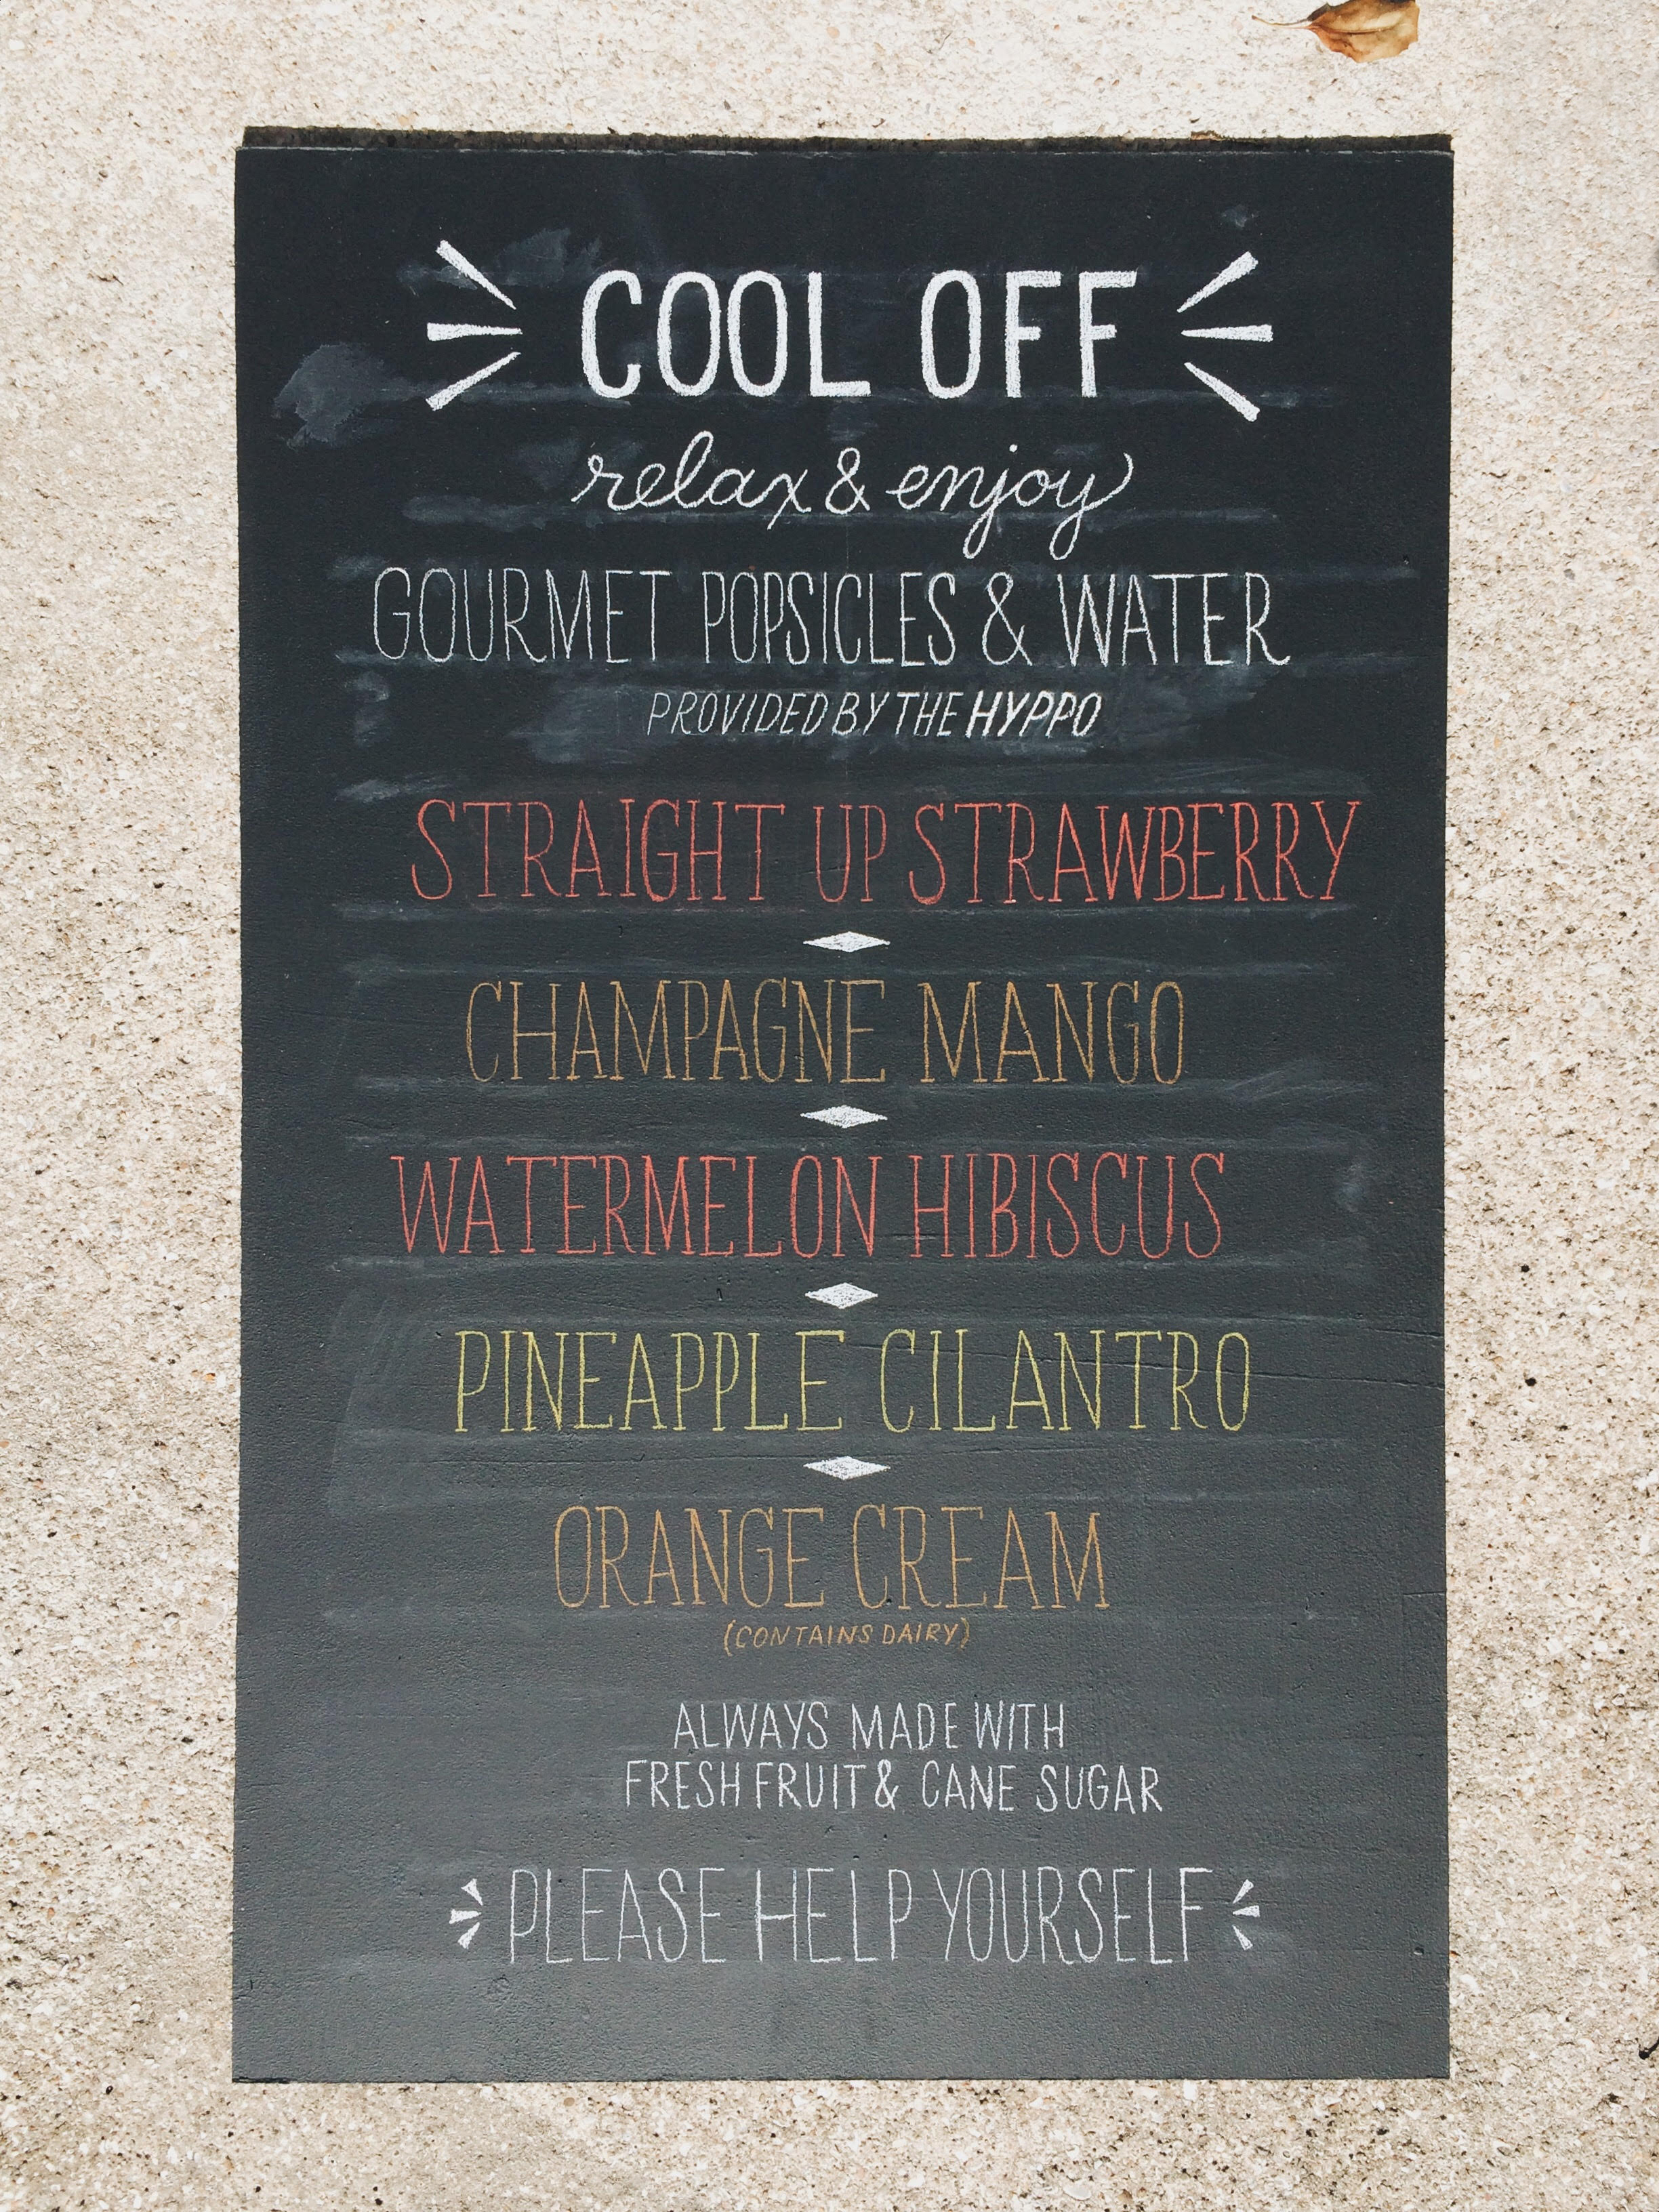 COOL OFF
relax & enjoy
GOURMET POPSICLES & WATER
PROVIDED BY THE HYPPO
STRAIGHT UP STRAWBERRY
CHAMPAGNE MANGO
WATERMELON HIBISCUS
PINEAPPLE CILANTRO
ORANGE CREAM
(CONTAINS DAIRY)
ALWAYS MADE WITH
FRESH FRUIT & CANE SUGAR
PLEASE HELP YOURSELF